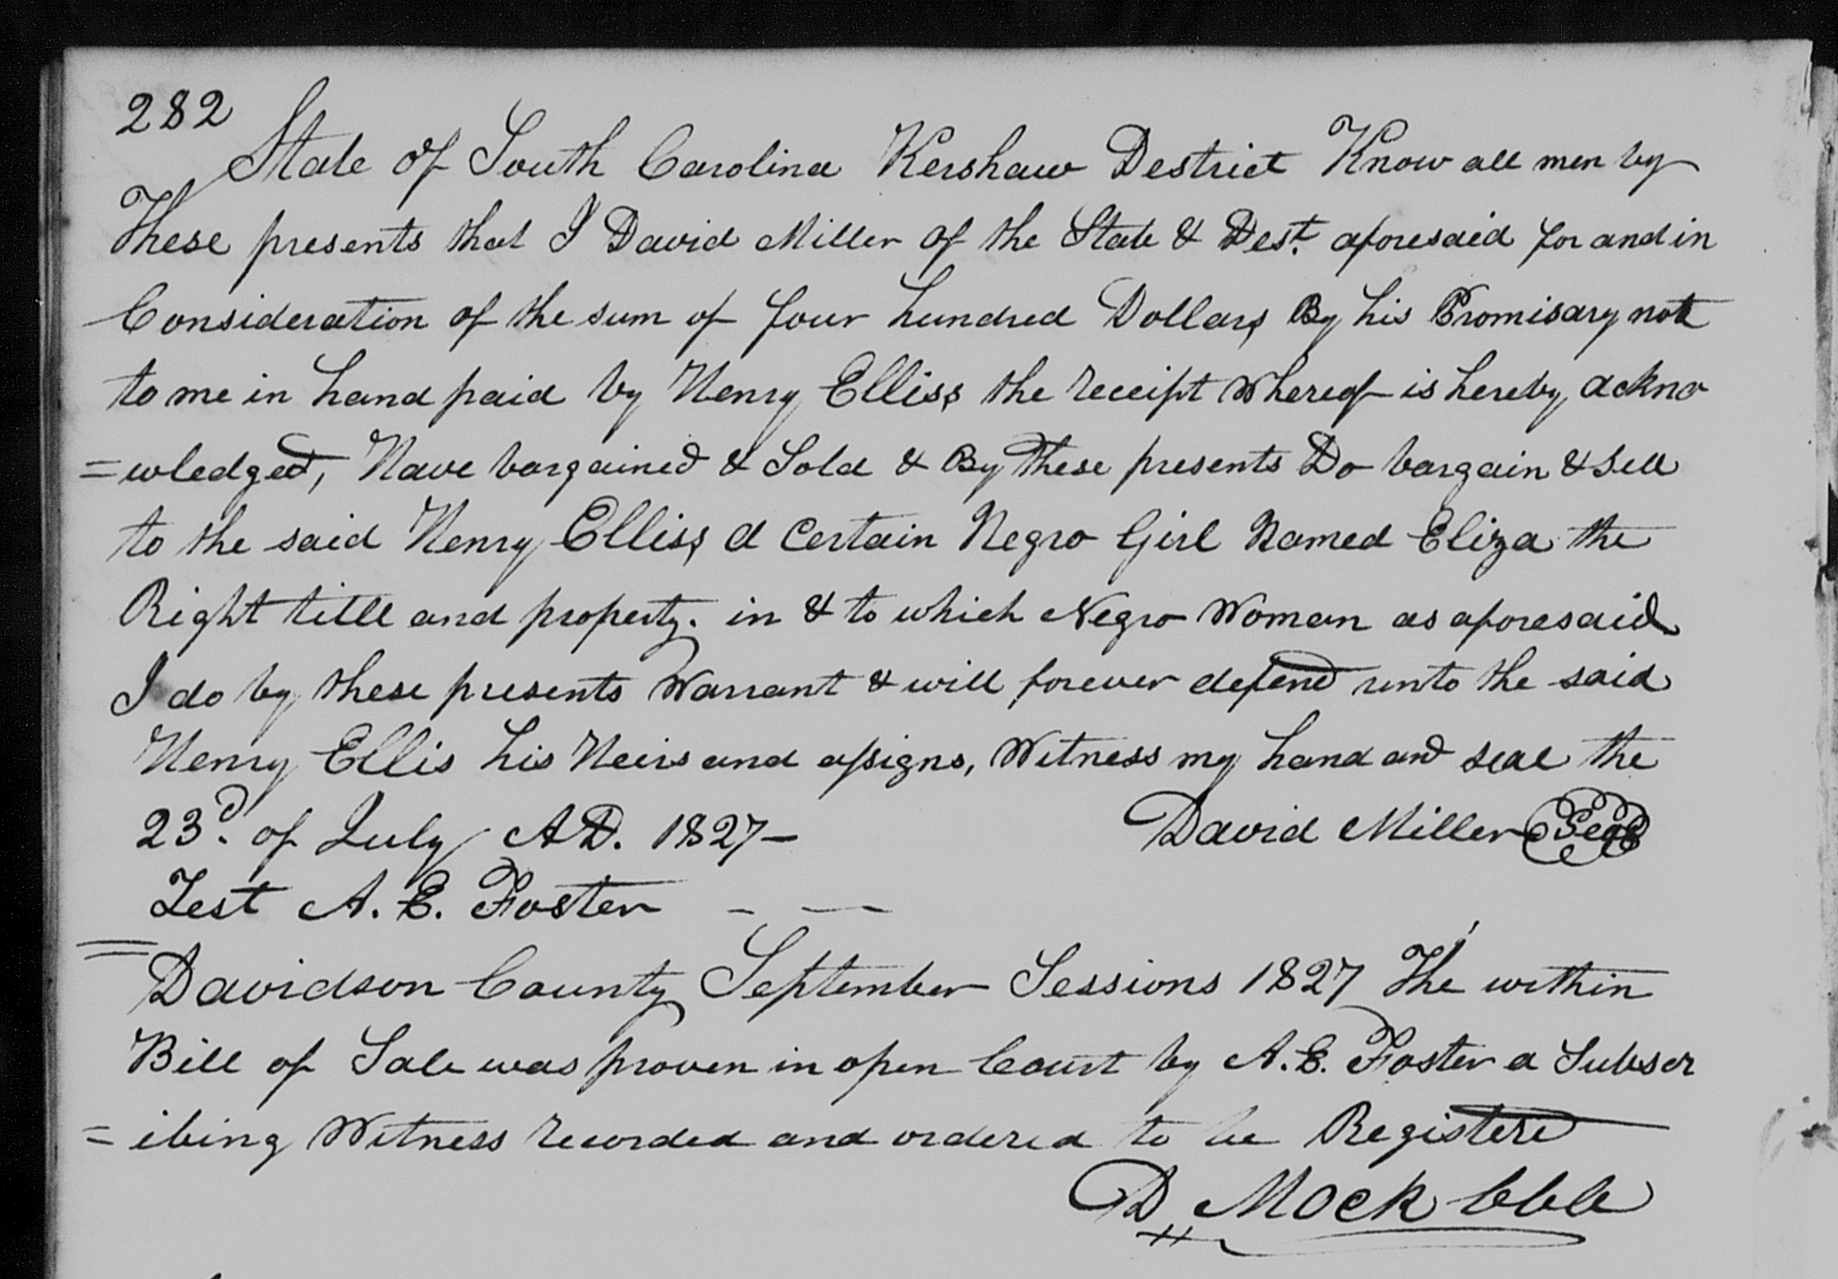 282
State of South Carolina Kershaw Destrict Know all men by
These presents that I David Miller of the State & Dest. aforesaid for and in
Consideration of the sum of four hundred Dollars By his Promisary note
to me in hand paid by Henry Elliss the receipt Whereof is hereby ackno
=wledged, Have bargained & Sold & By These presents Do bargain & sell
to the said Henry Elliss a Certain Negro Girl Named Eliza the
Right title and property. in & to which Negro Woman as aforesaid
I do by these presents Warrant & will forever defend unto the said
Henry Ellis his Heirs and assigns, Witness my hand and seal the
23d. of July AD. 1827-
David Miller Seal
Test A. E. Foster
Davidson County September Sessions 1827 The within
Bill of Sale was proven in open Court by A. E. Foster a Subscr
=ibing Witness recorded and ordered to be Registered
D Mock CCC